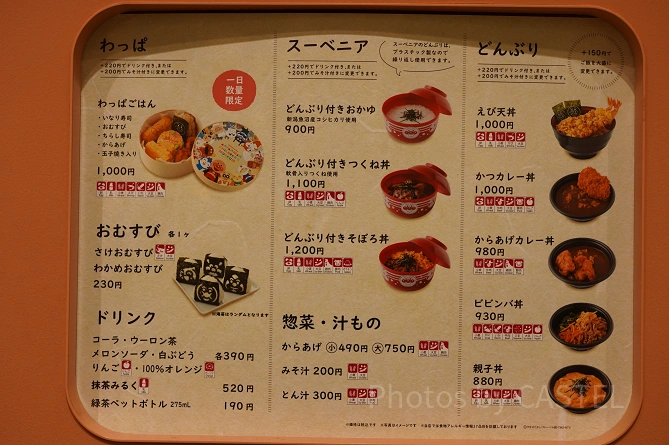 わっぱ
+220円でドリンク付き、または
+200円でみそ汁付きに変更できます。
一日
数量
限定
わっぱごはん
・いなり寿司
・おむすび
・ちらし寿司
・からあげ
・玉子焼き入り
1,000円
おむすび 各1ヶ
さけおむすび
わかめおむすび
230円
※海苔はランダムとなります
ドリンク
コーラ・ウーロン茶
メロンソーダ・白ぶどう 各390円
りんご・100%オレンジ
抹茶みるく 520円
緑茶ペットボトル 275mL 190円
スーベニア
+220円でドリンク付き、または
+200円でみそ汁付きに変更できます。
スーベニアのどんぶりは、
プラスチック製なので
繰り返し使用できます。
どんぶり付きおかゆ
新潟魚沼産コシヒカリ使用
900円
どんぶり付きつくね丼
軟骨入りつくね使用
1,100円
どんぶり付きそぼろ丼
1,200円
惣菜・汁もの
からあげ 小490円 大750円
みそ汁 200円
とん汁 300円
どんぶり
+220円でドリンク付き、または
+200円でみそ汁付きに変更できます。
+150円で
ご飯を大盛に
変更できます。
えび天丼
1,000円
かつカレー丼
1,000円
からあげカレー丼
980円
ビビンバ丼
930円
親子丼
880円
Photos by CASTEL